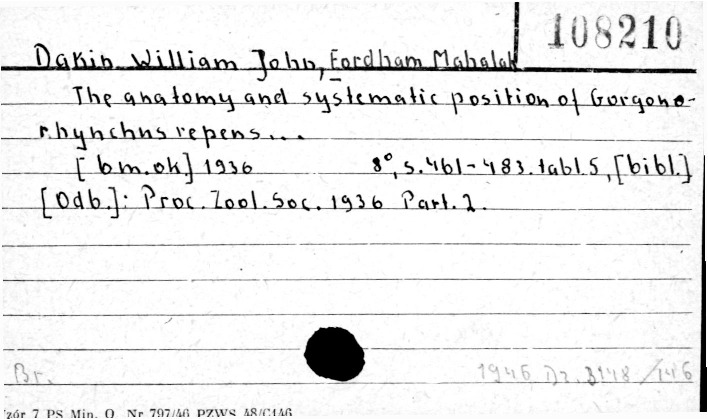 108210
Dakin William John, Fordham Mahalah
The anatomy and systematic position of Gorgono-
rhynchus repens...
[bm.ok] 1936 8°, s. 461-483. tabl. 5, [bibl.]
[Odb.]: Proc. Zool. Soc. 1936 Part. 2.
Br. 1946 Dz. 3148/146
zór 7 PS Min. O. Nr 797/46 PZWS 48/C146